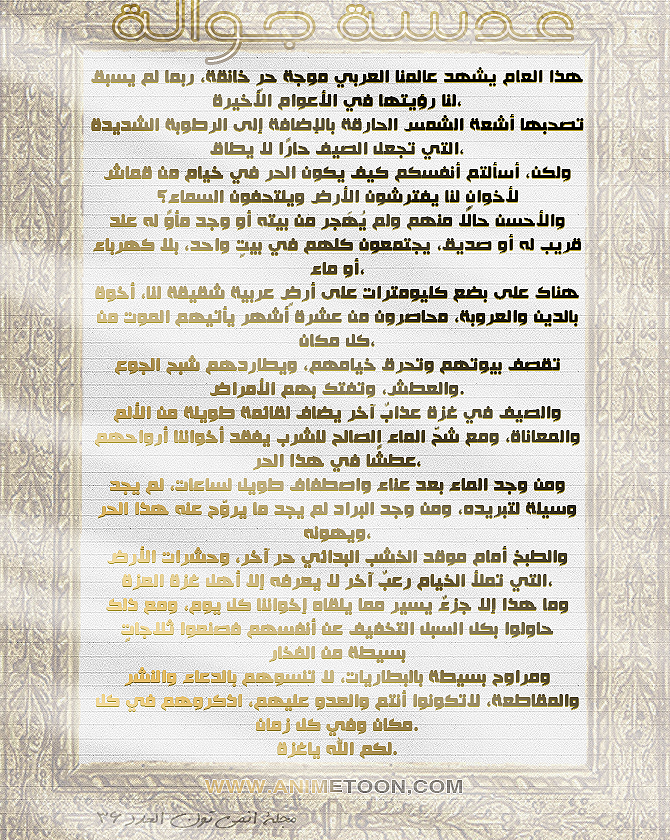 عدسة جوالة
هذا العام يشهد عالمنا العربي موجة حرٍ خانقة، ربما لم يسبق
لنا رؤيتها في الأعوام الأخيرة.
تصحبها أشعة الشمس الحارقة بالإضافة إلى الرطوبة الشديدة
التي تجعل الصيف حارًا لا يطاق.
ولكن، أسألتم أنفسكم كيف يكون الحر في خيام من قماش
لأخوانٍ لنا يفترشون الأرض ويلتحفون السماء؟
والأحسن حالًا منهم ولم يُهَجر من بيته أو وجد مأوً له عند
قريب له أو صديق، يجتمعون كلهم في بيتٍ واحد، بلا كهرباء
أو ماء.
هناك على بضع كليومترات على أرضٍ عربية شقيقة لنا، أخوة
بالدين والعروبة، محاصرون من عشرة أشهر يأتيهم الموت من
كل مكان.
تقصف بيوتهم وتحرق خيامهم، ويطاردهم شبح الجوع
والعطش، وتفتك بهم الأمراض.
والصيف في غزة عذابٌ آخر يضاف لقائمة طويلة من الألم
والمعاناة، ومع شحّ الماء الصالح للشرب يفقد أخواننا أرواحهم
عطشًا في هذا الحر.
ومن وجد الماء بعد عناء واصطفاف طويل لساعات، لم يجد
وسيلة لتبريده، ومن وجد البراد لم يجد ما يروّح عنه هذا الحر
ويهونه.
والطبخ أمام موقد الخشب البدائي حر آخر، وحشرات الأرض
التي تملأ الخيام رعبٌ آخر لا يعرفه إلا أهل غزة العزة.
وما هذا إلا جزءٌ يسير مما يلقاه إخواننا كل يوم، ومع ذلك
حاولوا بكل السبل التخفيف عن أنفسهم فصنعوا ثلاجاتٍ
بسيطة من الفخار
ومراوح بسيطة بالبطاريات، لا تنسوهم بالدعاء والنشر
والمقاطعة، لاتكونوا أنتم والعدو عليهم، اذكروهم في كل
مكان وفي كل زمان.
لكم الله ياغزة.
WWW.ANIMETOON.COM
مجلة انمي تون - العدد ٣٦